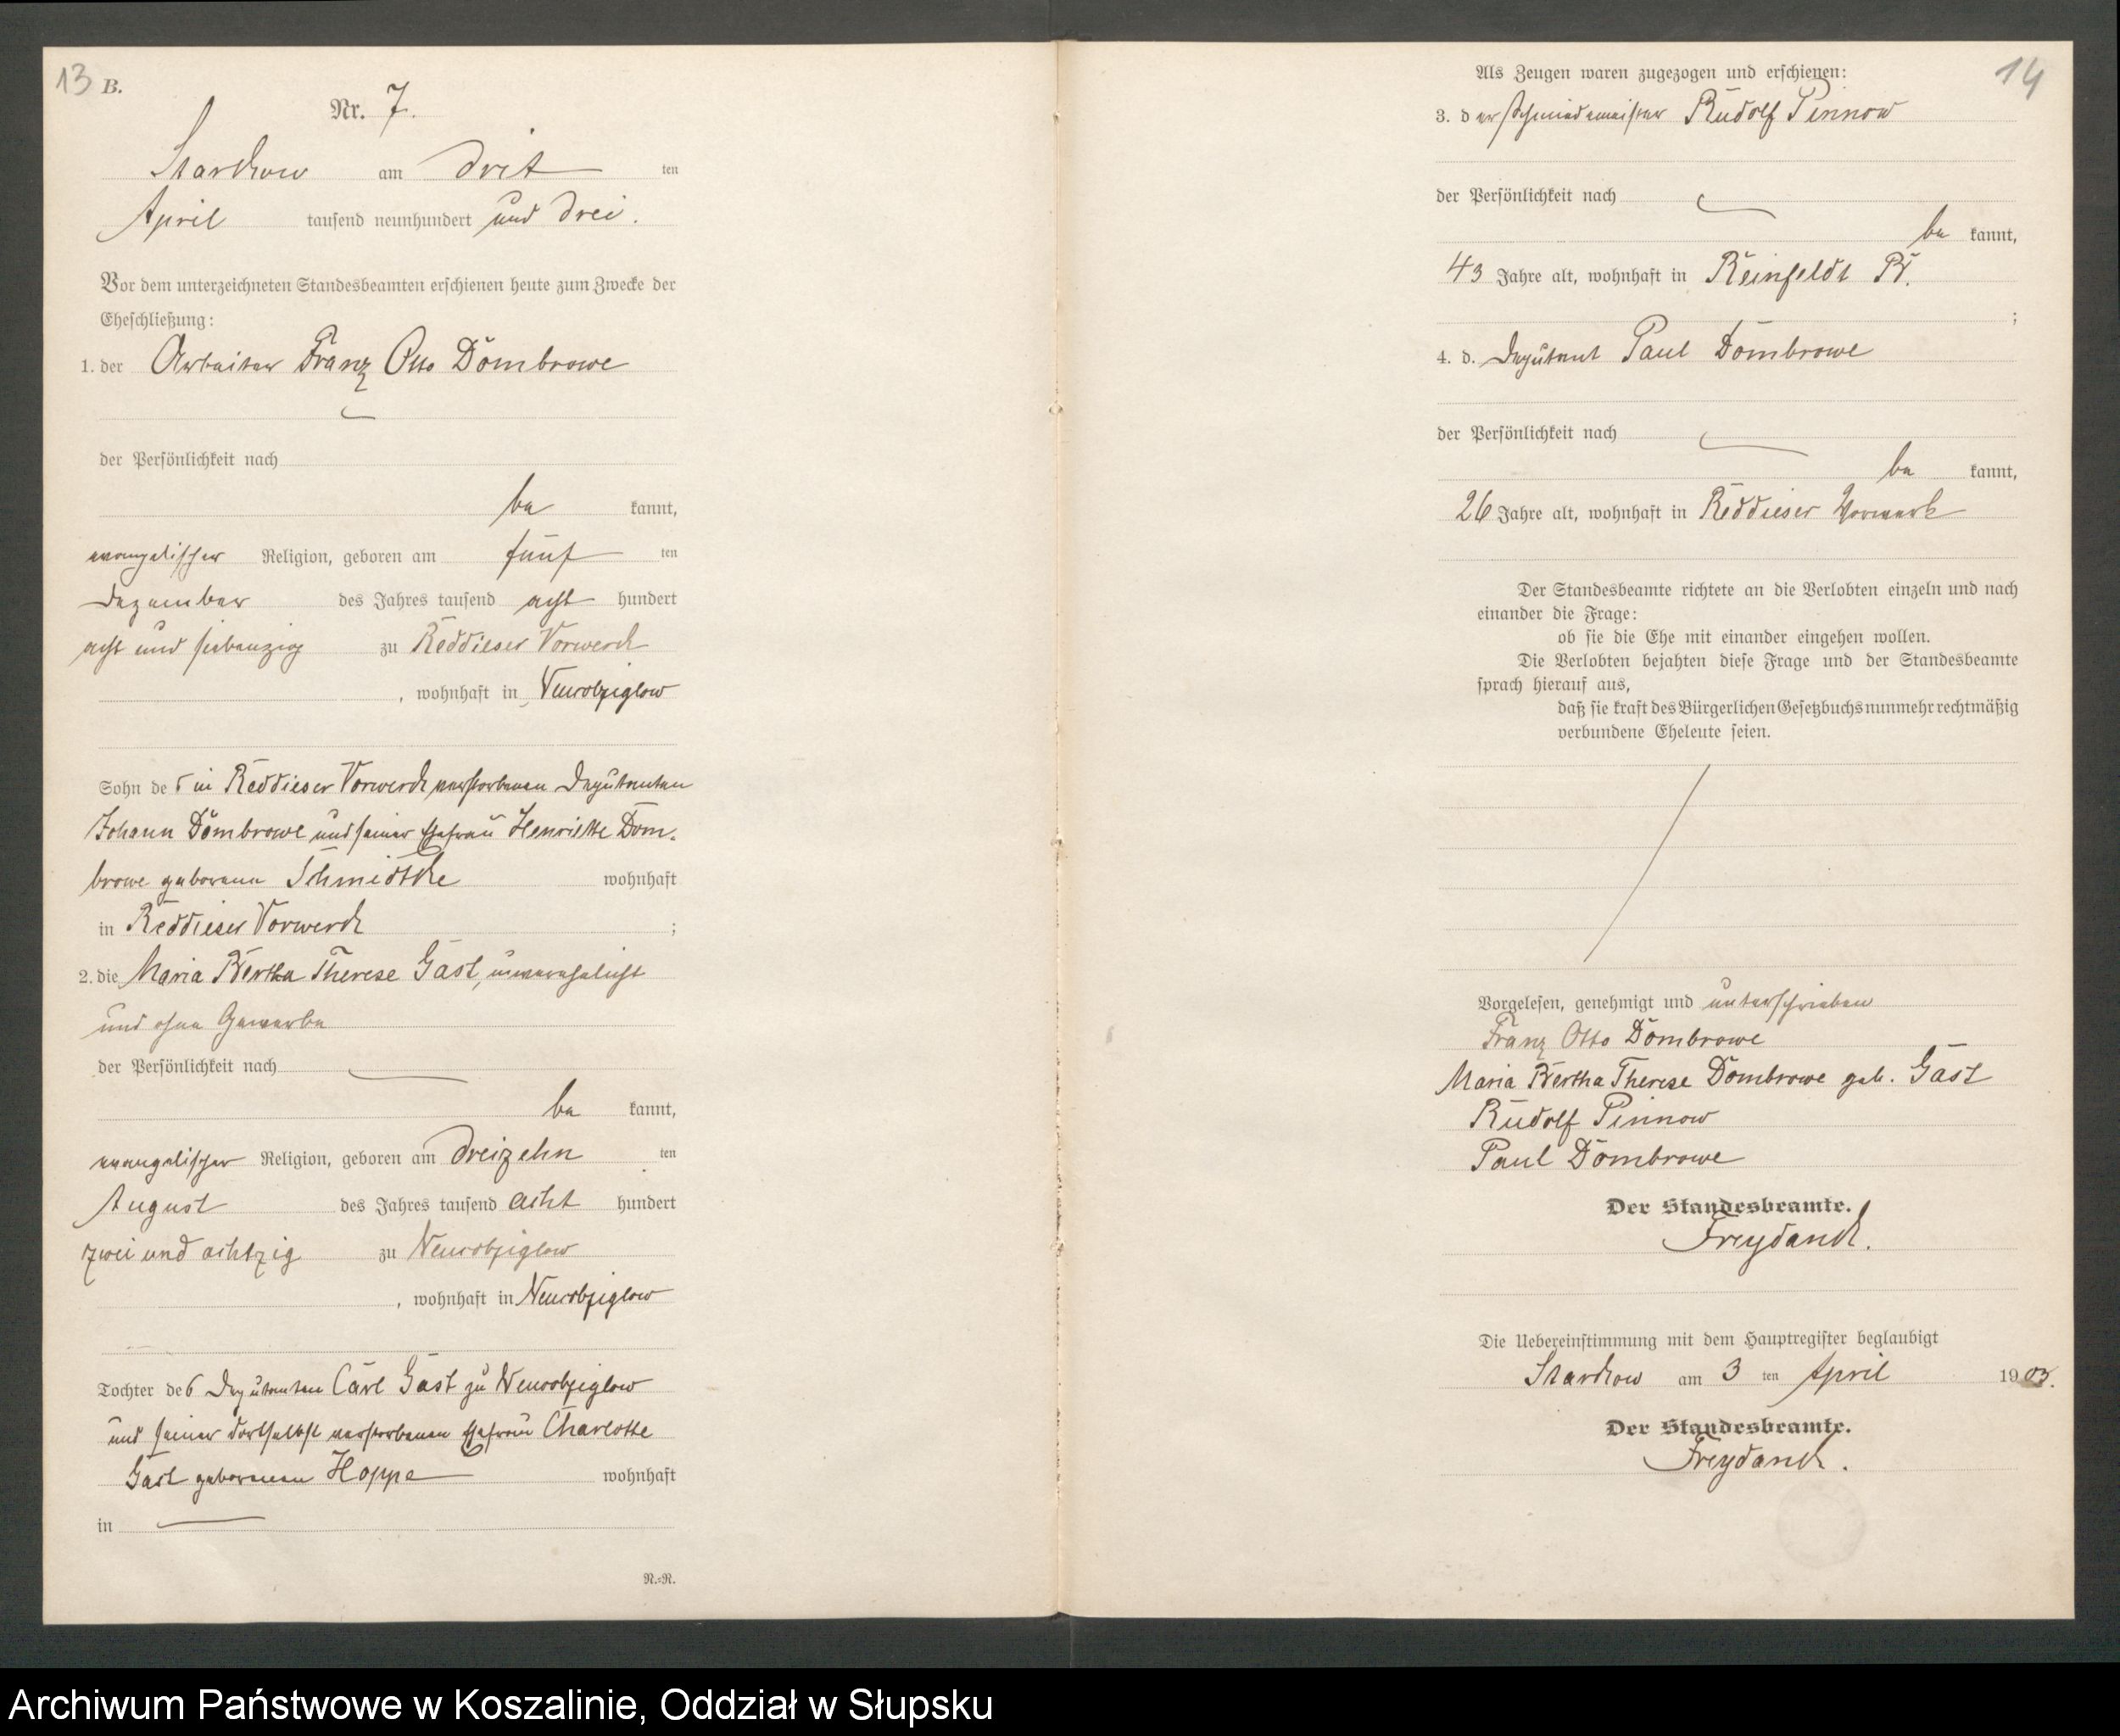 13
B.
Nr. 7.
Starkow am drit ten
April tausend neunhundert und drei.
Vor dem unterzeichneten Standesbeamten erschienen heute zum Zwecke der
Eheschließung:
1. der Arbeiter Franz Otto Dombrowe
der Persönlichkeit nach
be kannt,
evangelischer Religion, geboren am fünf ten
Dezember des Jahres tausend acht hundert
acht und siebenzig zu Reddieser Vorwerck
, wohnhaft in Neurobziglow
Sohn des in Reddieser Vorwerck verstorbenen Deputanten
Johann Dombrowe und seiner Ehefrau Henriette Dom-
browe geborene Schmidtke wohnhaft
in Reddieser Vorwerck ;
2. die Maria Bertha Therese Gast, unverehelicht
und ohne Gewerbe
der Persönlichkeit nach
be kannt,
evangelischer Religion, geboren am dreizehn ten
August des Jahres tausend acht hundert
zwei und achtzig zu Neurobziglow
, wohnhaft in Neurobziglow
Tochter des Deputanten Carl Gast zu Neurobziglow
und seiner dortselbst verstorbenen Ehefrau Charlotte
Gast geborenen Hoppe wohnhaft
in
R.=R.
14
Als Zeugen waren zugezogen und erschienen:
3. der Schmiedemeister Rudolf Pinnow
der Persönlichkeit nach
be kannt,
43 Jahre alt, wohnhaft in Reinfeldt
;
4. d. Deputant Paul Dombrowe
der Persönlichkeit nach
be kannt,
26 Jahre alt, wohnhaft in Reddieser Vorwerk
Der Standesbeamte richtete an die Verlobten einzeln und nach
einander die Frage:
ob sie die Ehe mit einander eingehen wollen.
Die Verlobten bejahten diese Frage und der Standesbeamte
sprach hierauf aus,
daß sie kraft des Bürgerlichen Gesetzbuchs nunmehr rechtmäßig
verbundene Eheleute seien.
Vorgelesen, genehmigt und unterschrieben
Franz Otto Dombrowe
Maria Bertha Therese Dombrowe geb. Gast
Rudolf Pinnow
Paul Dombrowe
Der Standesbeamte.
Freydanck.
Die Uebereinstimmung mit dem Hauptregister beglaubigt
Starkow am 3 ten April 1903.
Der Standesbeamte.
Freydanck.
Archiwum Państwowe w Koszalinie, Oddział w Słupsku